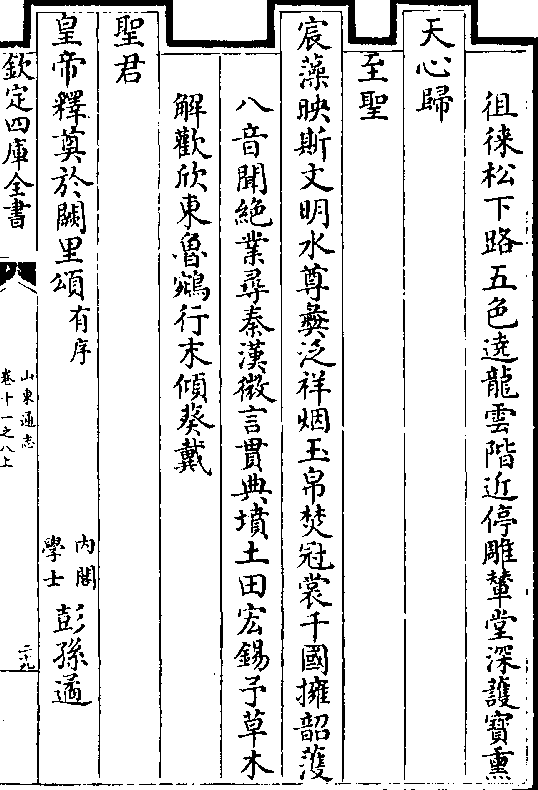 徂徠松下路五色遶龍雲階近停雕輦堂深護寶熏
天心歸
至聖
宸藻映斯文明水尊彝泛祥烟玉帛焚冠裳千國擁韶頀
八音聞絶業尋秦漢微言貫典墳土田宏錫予草木
解歡欣東魯鵷行末傾葵戴
聖君
皇帝釋奠於闕里頌有序
內閣學士彭孫遹
欽定四庫全書
山東通志
卷十一之八上
二十九